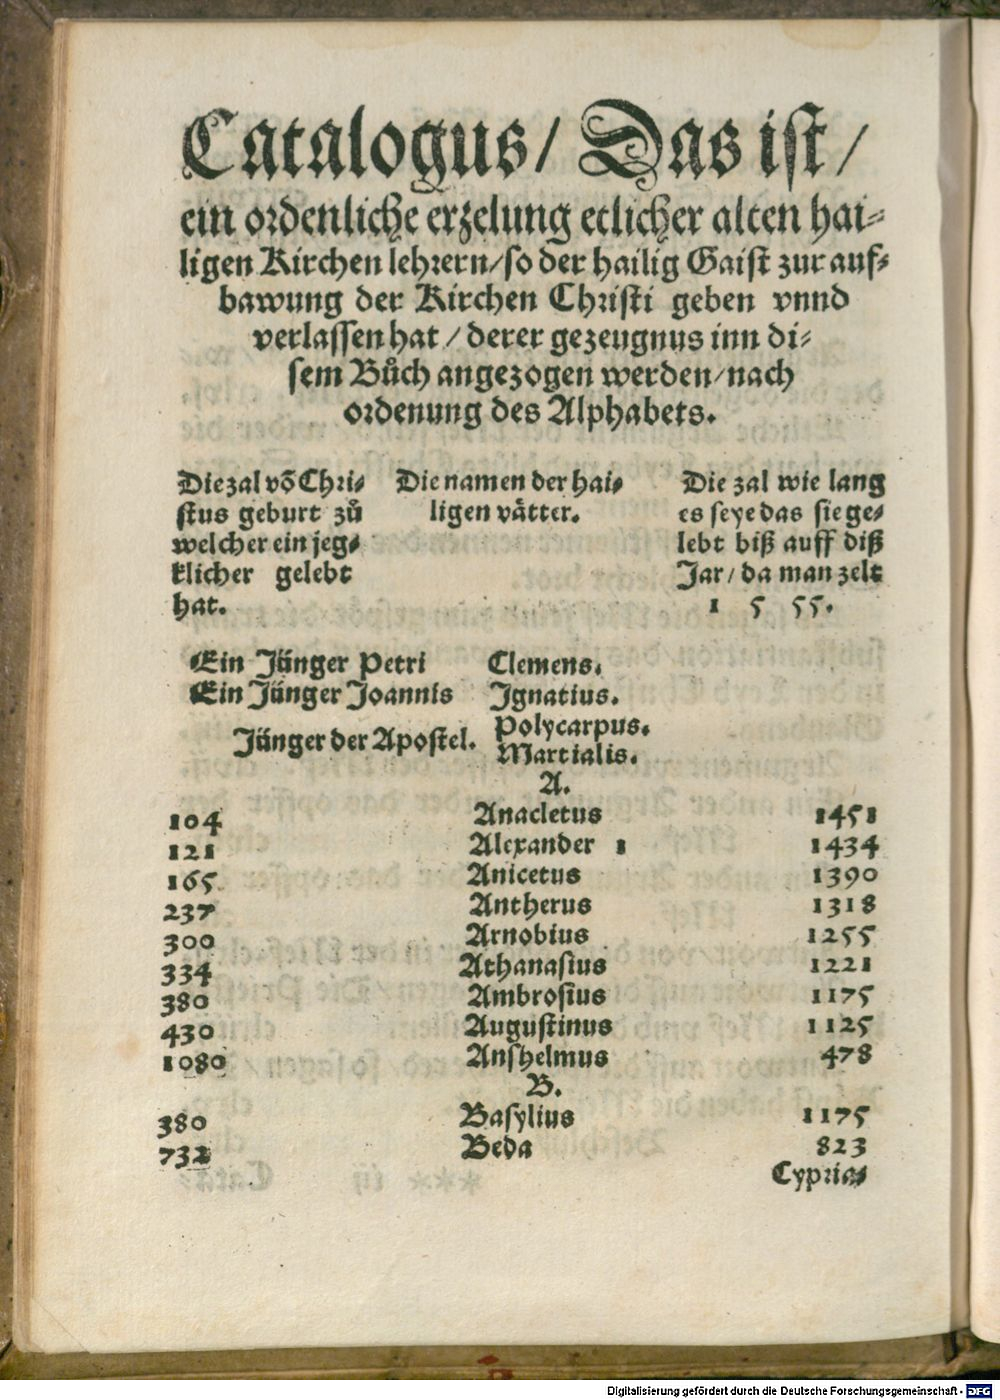 Catalogus/ Das ist/
ein ordenliche erzelung etlicher alten hai⸗
ligen Kirchen lehrern/so der hailig Gaist zur auf⸗
bawung der Kirchen Christi geben vnnd
verlassen hat / derer gezeugnus inn di⸗
sem Bůch angezogen werden/nach
ordenung des Alphabets.
Die zal võ Chri⸗
stus geburt zů
welcher ein jeg⸗
klicher gelebt
hat.
Die namen der hai⸗
ligen vätter.
Die zal wie lang
es seye das sie ge⸗
lebt biß auff diß
Jar/ da man zelt
1 5 55.
Ein Jünger Petri Clemens.
Ein Jünger Joannis Ignatius.
Jünger der Apostel. Polycarpus.
Martialis.
A.
104 Anacletus 1451
121 Alexander 1 1434
165 Anicetus 1390
237 Antherus 1318
300 Arnobius 1255
334 Athanasius 1221
380 Ambrosius 1175
430 Augustinus 1125
1080 Anshelmus 478
B.
380 Basylius 1175
732 Beda 823
Cypria⸗
Digitalisierung gefördert durch die Deutsche Forschungsgemeinschaft - DFG